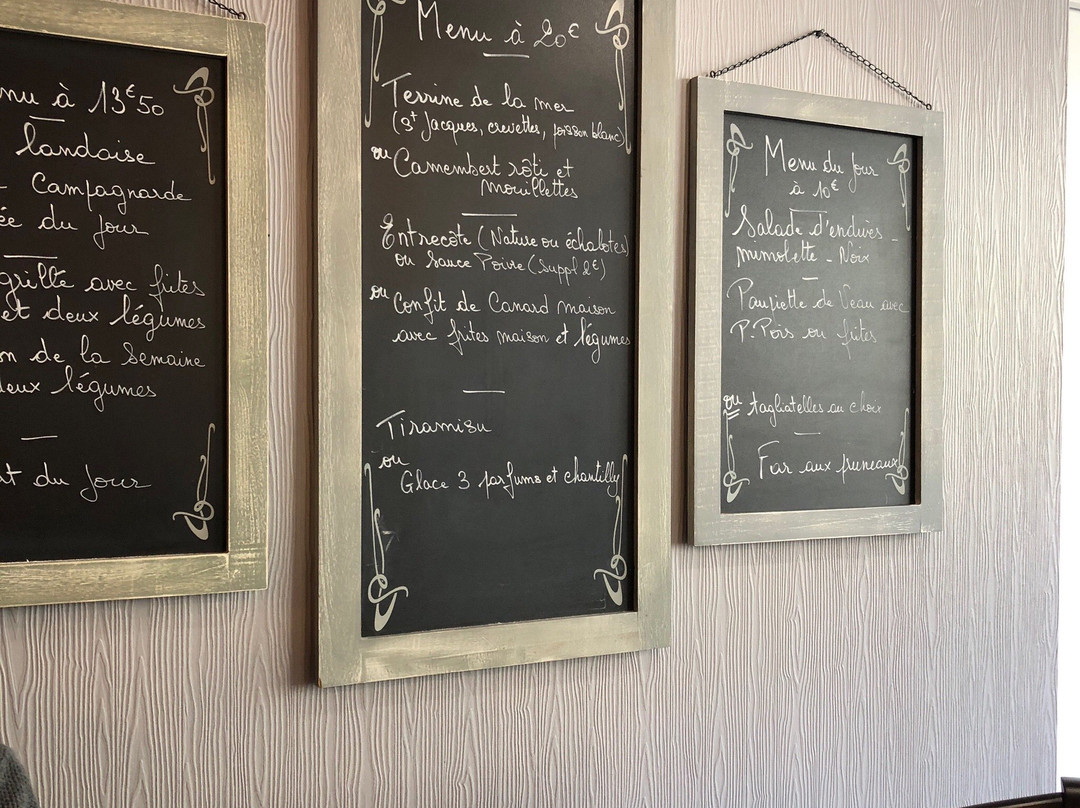 nu à 13€50
landaise
- Campagnarde
ée du jour
grillé avec frites
et deux légumes
n de la Semaine
deux légumes
t du jour
Menu à 20€
Terrine de la mer
(St Jacques, crevettes, poisson blanc)
ou Camembert rôti et
mouillettes
Entrecôte (Nature ou échalotes)
ou Sauce Poivre (Suppl 2€)
ou Confit de Canard maison
avec frites maison et légumes
Tiramisu
ou
Glace 3 parfums et chantilly
Menu du jour
à 10€
Salade d'endives -
mimolette - Noix
Paupiette de Veau avec
P. Pois ou frites
ou tagliatelles au choix
Far aux pruneaux